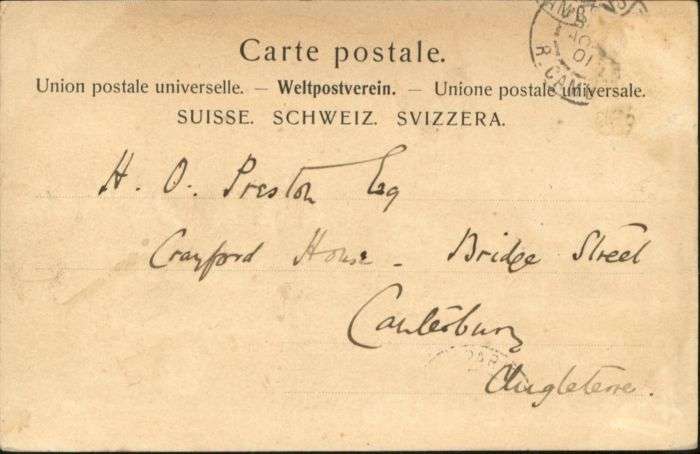 Carte postale.
Union postale universelle. — Weltpostverein. — Unione postale universale.
SUISSE. SCHWEIZ. SVIZZERA.
H. O. Preston Esq
Crayford House - Bridge Street
Canterbury
Angleterre.